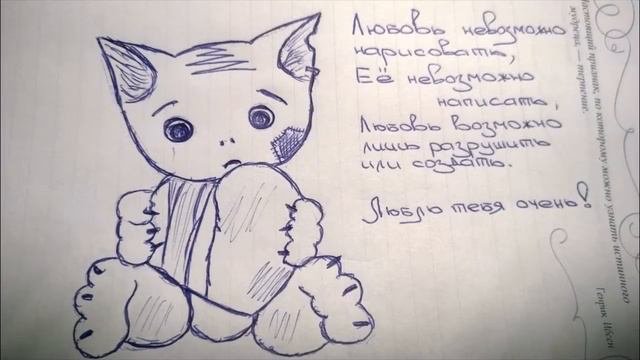 Любовь невозможно
нарисовать,
Её невозможно
написать,
Любовь возможно
лишь разрушить
или создать.
Люблю тебя очень!
Настоящий признак, по которому можно узнать истинного
мудреца, — терпение.
Генрик Ибсен